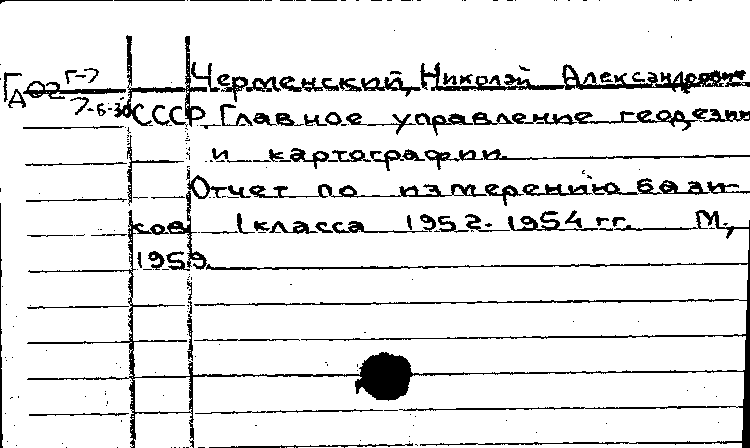 Г-7 Черменский, Николай Александрович
7-5-30 СССР. Главное управление геодезии
и картографии.
Отчет по измерению бази-
сов 1 класса 1952-1954 гг. М.,
1959.